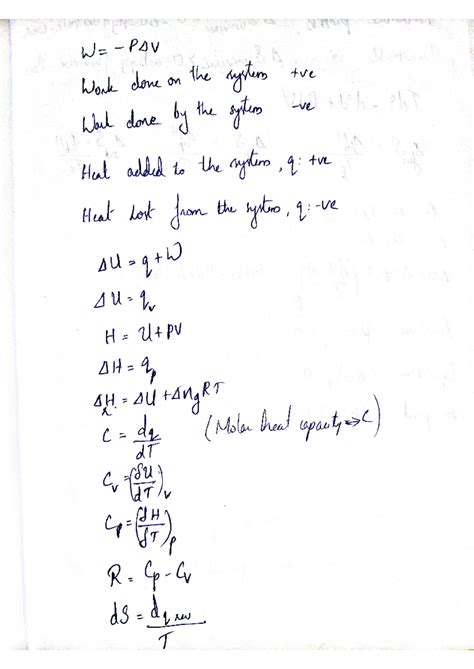 W = - PΔV
Work done on the system +ve
Work done by the system -ve
Heat added to the system, q: +ve
Heat lost from the system, q: -ve
ΔU = q + W
ΔU = q_v
H = U + PV
ΔH = q_p
ΔH = ΔU + Δn_g RT
C = dq/dT (Molar heat capacity ⇒ C)
C_v = (δU/dT)_v
C_p = (δH/δT)_p
R = C_p - C_v
dS = dq_rev/T